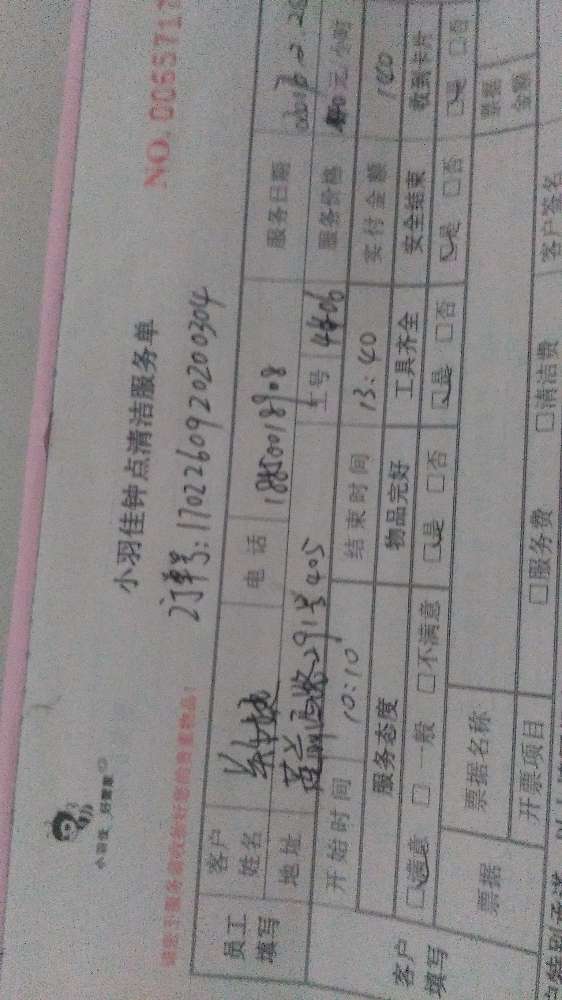 小羽佳 好管家
小羽佳钟点清洁服务单
NO. 0065717
订单号:1702260920200304
请您于服务前收拾好您的贵重物品!
员工填写
客户姓名 电话 18850018908 服务日期
地址 莲前西路291号405 工号 4406 服务价格 元/小时
开始时间 10:10 结束时间 13:40 实付金额 140
客户填写
服务态度 物品完好 工具齐全 安全结束 收到卡片
□满意 □一般 □不满意 □是 □否 □是 □否 □是 □否 □是 □否
票据 票据名称 票据金额
开票项目 □服务费 □清洁费 客户签名